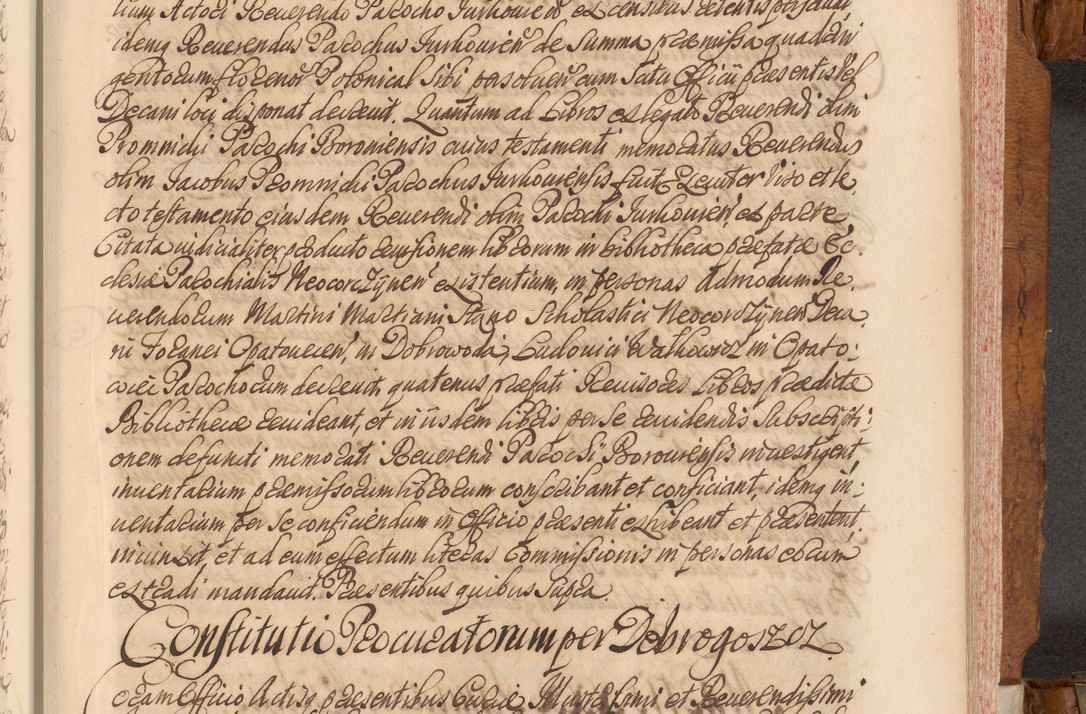 idemq Reuerendus Parochus Jurkouien de Summa præmissa quadrin
gentorum florenor Polonical Sibi persoluen cum Satu Officii præsentis Vel
Decani loci disponat decreuit. Quantum ad Libros ex legato Reuerendi olim
Promnicki Parochi Boroniensis cuius testamenti memoratus Reuerendus
olim Jacobus Promnicki Parochus Jurkouiensis fuit Executor Viso et le
cto testamento eiusdem Reuerendi olim Parochi Jurkouien, ex parte
Citata iudicialiter producto reuisionem librorum in bibliotheca præfatæ Ec
clesiæ Parochialis Neocorzÿnen existentium, in personas Admodum Re
uerendorum Martini Martiani Stano Scholastici Neocorzÿnen Deca
ni Foranei Opatouecen, in Dobrowoda, Ludouici Walkowicz in Opato:
wiec Parochorum decreuit, quatenus præfati Reuisores Libros prædictæ
Bibliothecæ reuideant, et in iisdem libris per se reuidendis Subscripti:
onem defuncti memorati Reuerendi Parochi Borouiensis inuestigent,
inuentarium præmissorum librorum conscribant et conficiant, idemq in:
uentarium per se conficiendum in Officio præsenti exhibeant et præsentent,
iniunxit, et ad eum effectum literas Commissionis in personas eorum
extradi mandauit. Præsentibus quibus Supra.
Constitutio Procuratorum per Dobrogoszcz
Coram Officio Actisq præsentibus Curiæ Illustrissimi et Reuerendissimi